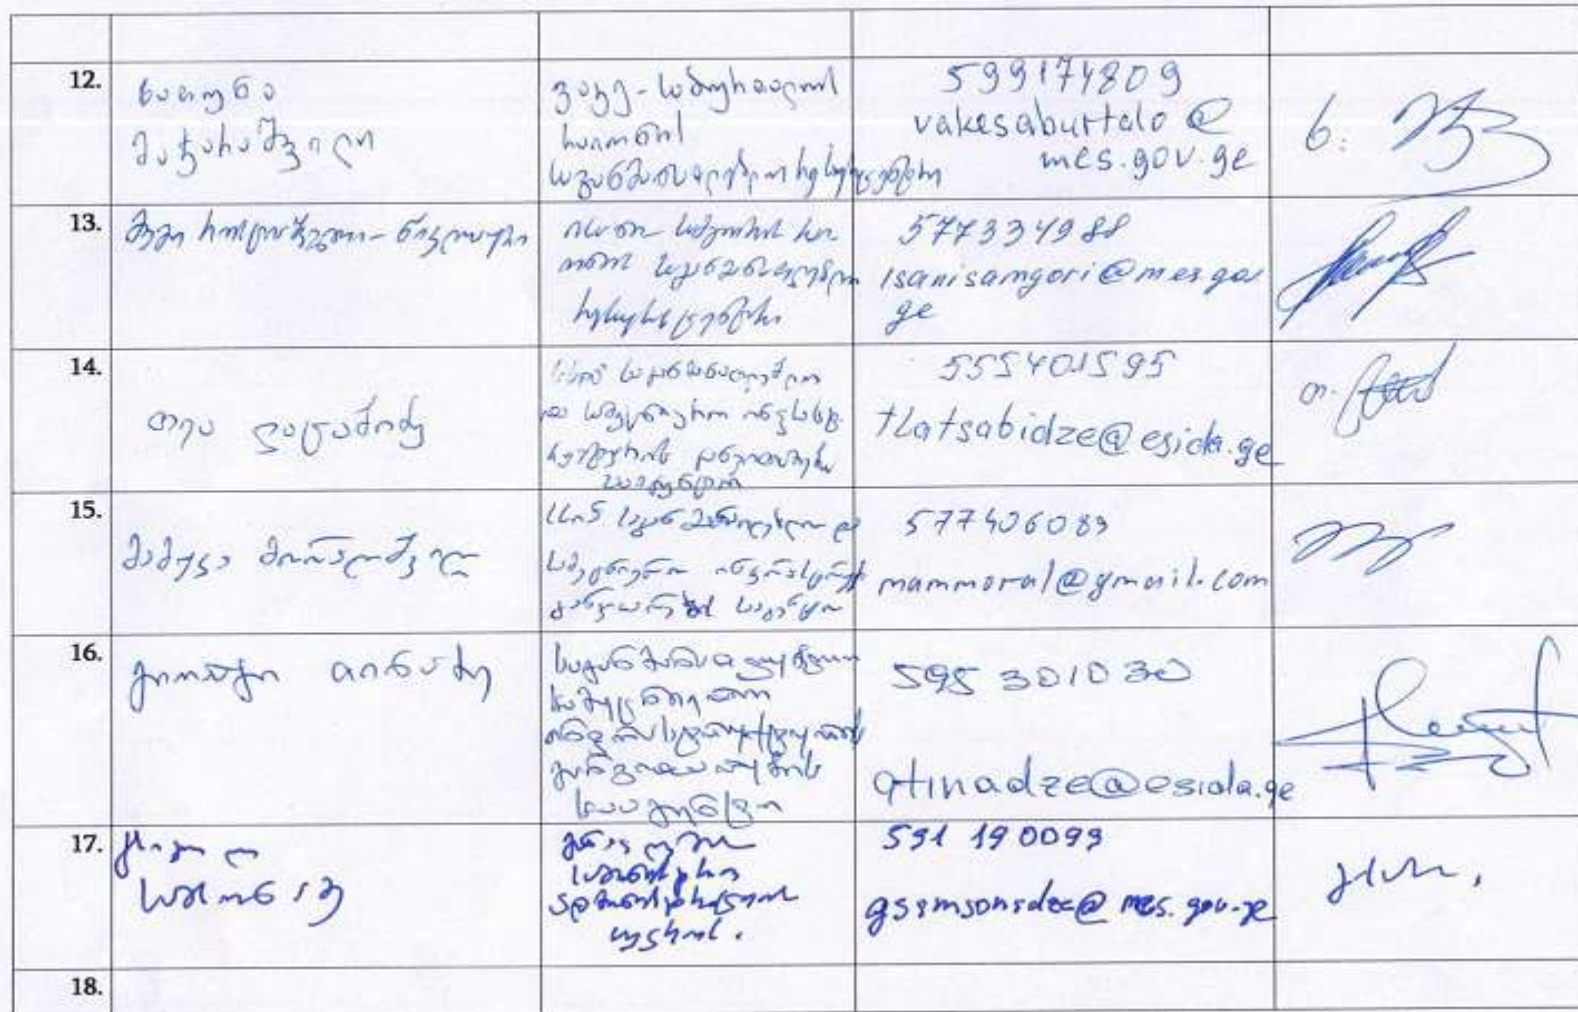 12.
ხათუნა
მაჭარაშვილი
ვაკე-საბურთალოს
რაიონის
საგანმანათლებლო რესურსცენტრი
599174809
vakesaburtalo@
mes.gov.ge
13.
577334988
ისანი-სამგორის რაი
ონის საგანმანათლებლო
რესურსცენტრი
isanisamgori@mes.gov
ge
14.
თეა ლაცაბიძე
სსიპ საგანმანათლებლო
და სამეცნიერო ინფრასტ
რუქტურის განვითარების
სააგენტო
555401595
tlatsabidze@esida.ge
15.
მამუკა მორალიშვილი
სსიპ საგანმანათლებლო და
სამეცნიერო ინფრასტრუქ
განვითარების სააგენტო
577406089
mammoral@gmail.com
16.
გიორგი თინაძე
საგანმანათლებლო
სამეცნიერო
ინფრასტრუქტურის
განვითარების
სააგენტო
595 301030
gtinadze@esida.ge
17.
სამსონაძე
591 190099
gsamsonadze@mes.gov.ge
18.